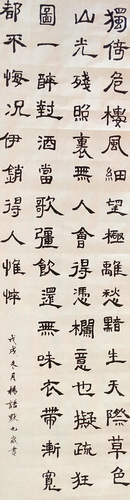 獨倚危樓風細望極離愁黯生天際草色
山光殘照裏無人會得憑欄意也擬疏狂
圖一醉對酒當歌彊飲還無味衣帶漸寬
都不悔況伊銷得人憔悴
戊戌冬月楊書